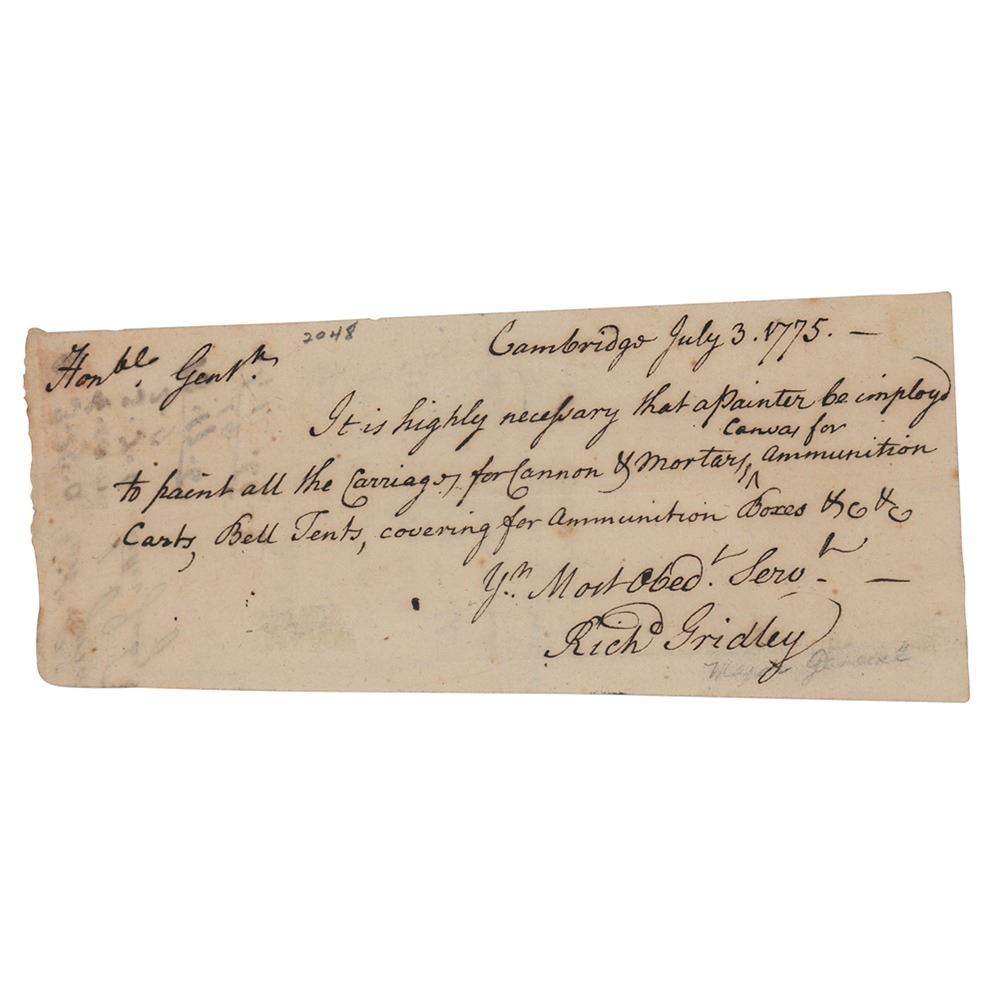 2048
Cambridge July 3. 1775. —
Honble. Gentn.
It is highly necessary that a Painter be imployd
to paint all the Carriages for Cannon & Mortars, ^ Canvas for Ammunition
Carts, Bell Tents, covering for Ammunition Boxes &c &c
Yrs. Most Obedt. Servt. —
Richd Gridley
Major General